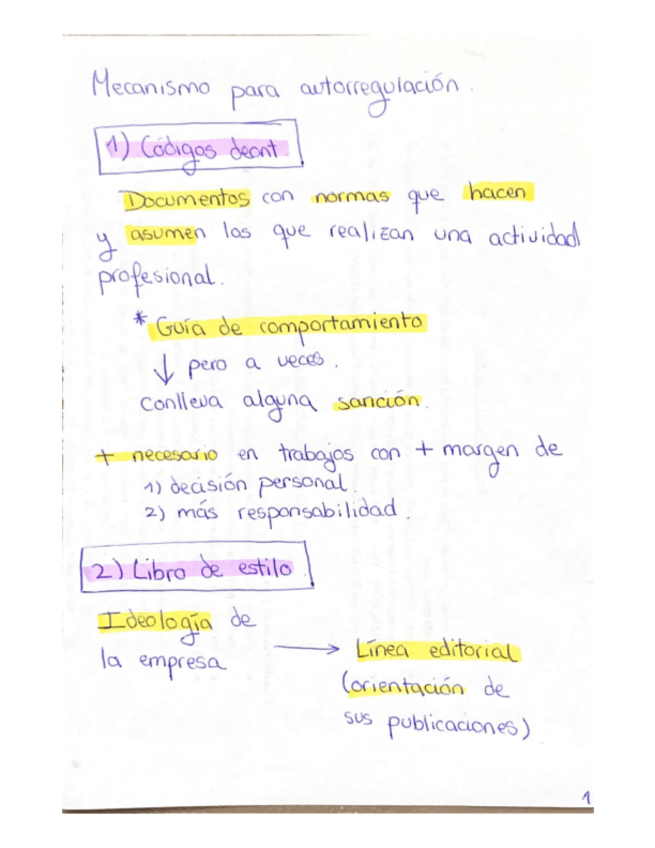 Mecanismo para autorregulación.
1) Códigos deont
Documentos con normas que hacen
y asumen los que realizan una actividad
profesional.
* Guía de comportamiento
↓ pero a veces.
conlleva alguna sanción.
+ necesario en trabajos con + margen de
1) decisión personal.
2) más responsabilidad.
2) Libro de estilo
Ideología de
la empresa
→ Línea editorial
(orientación de
sus publicaciones)
1